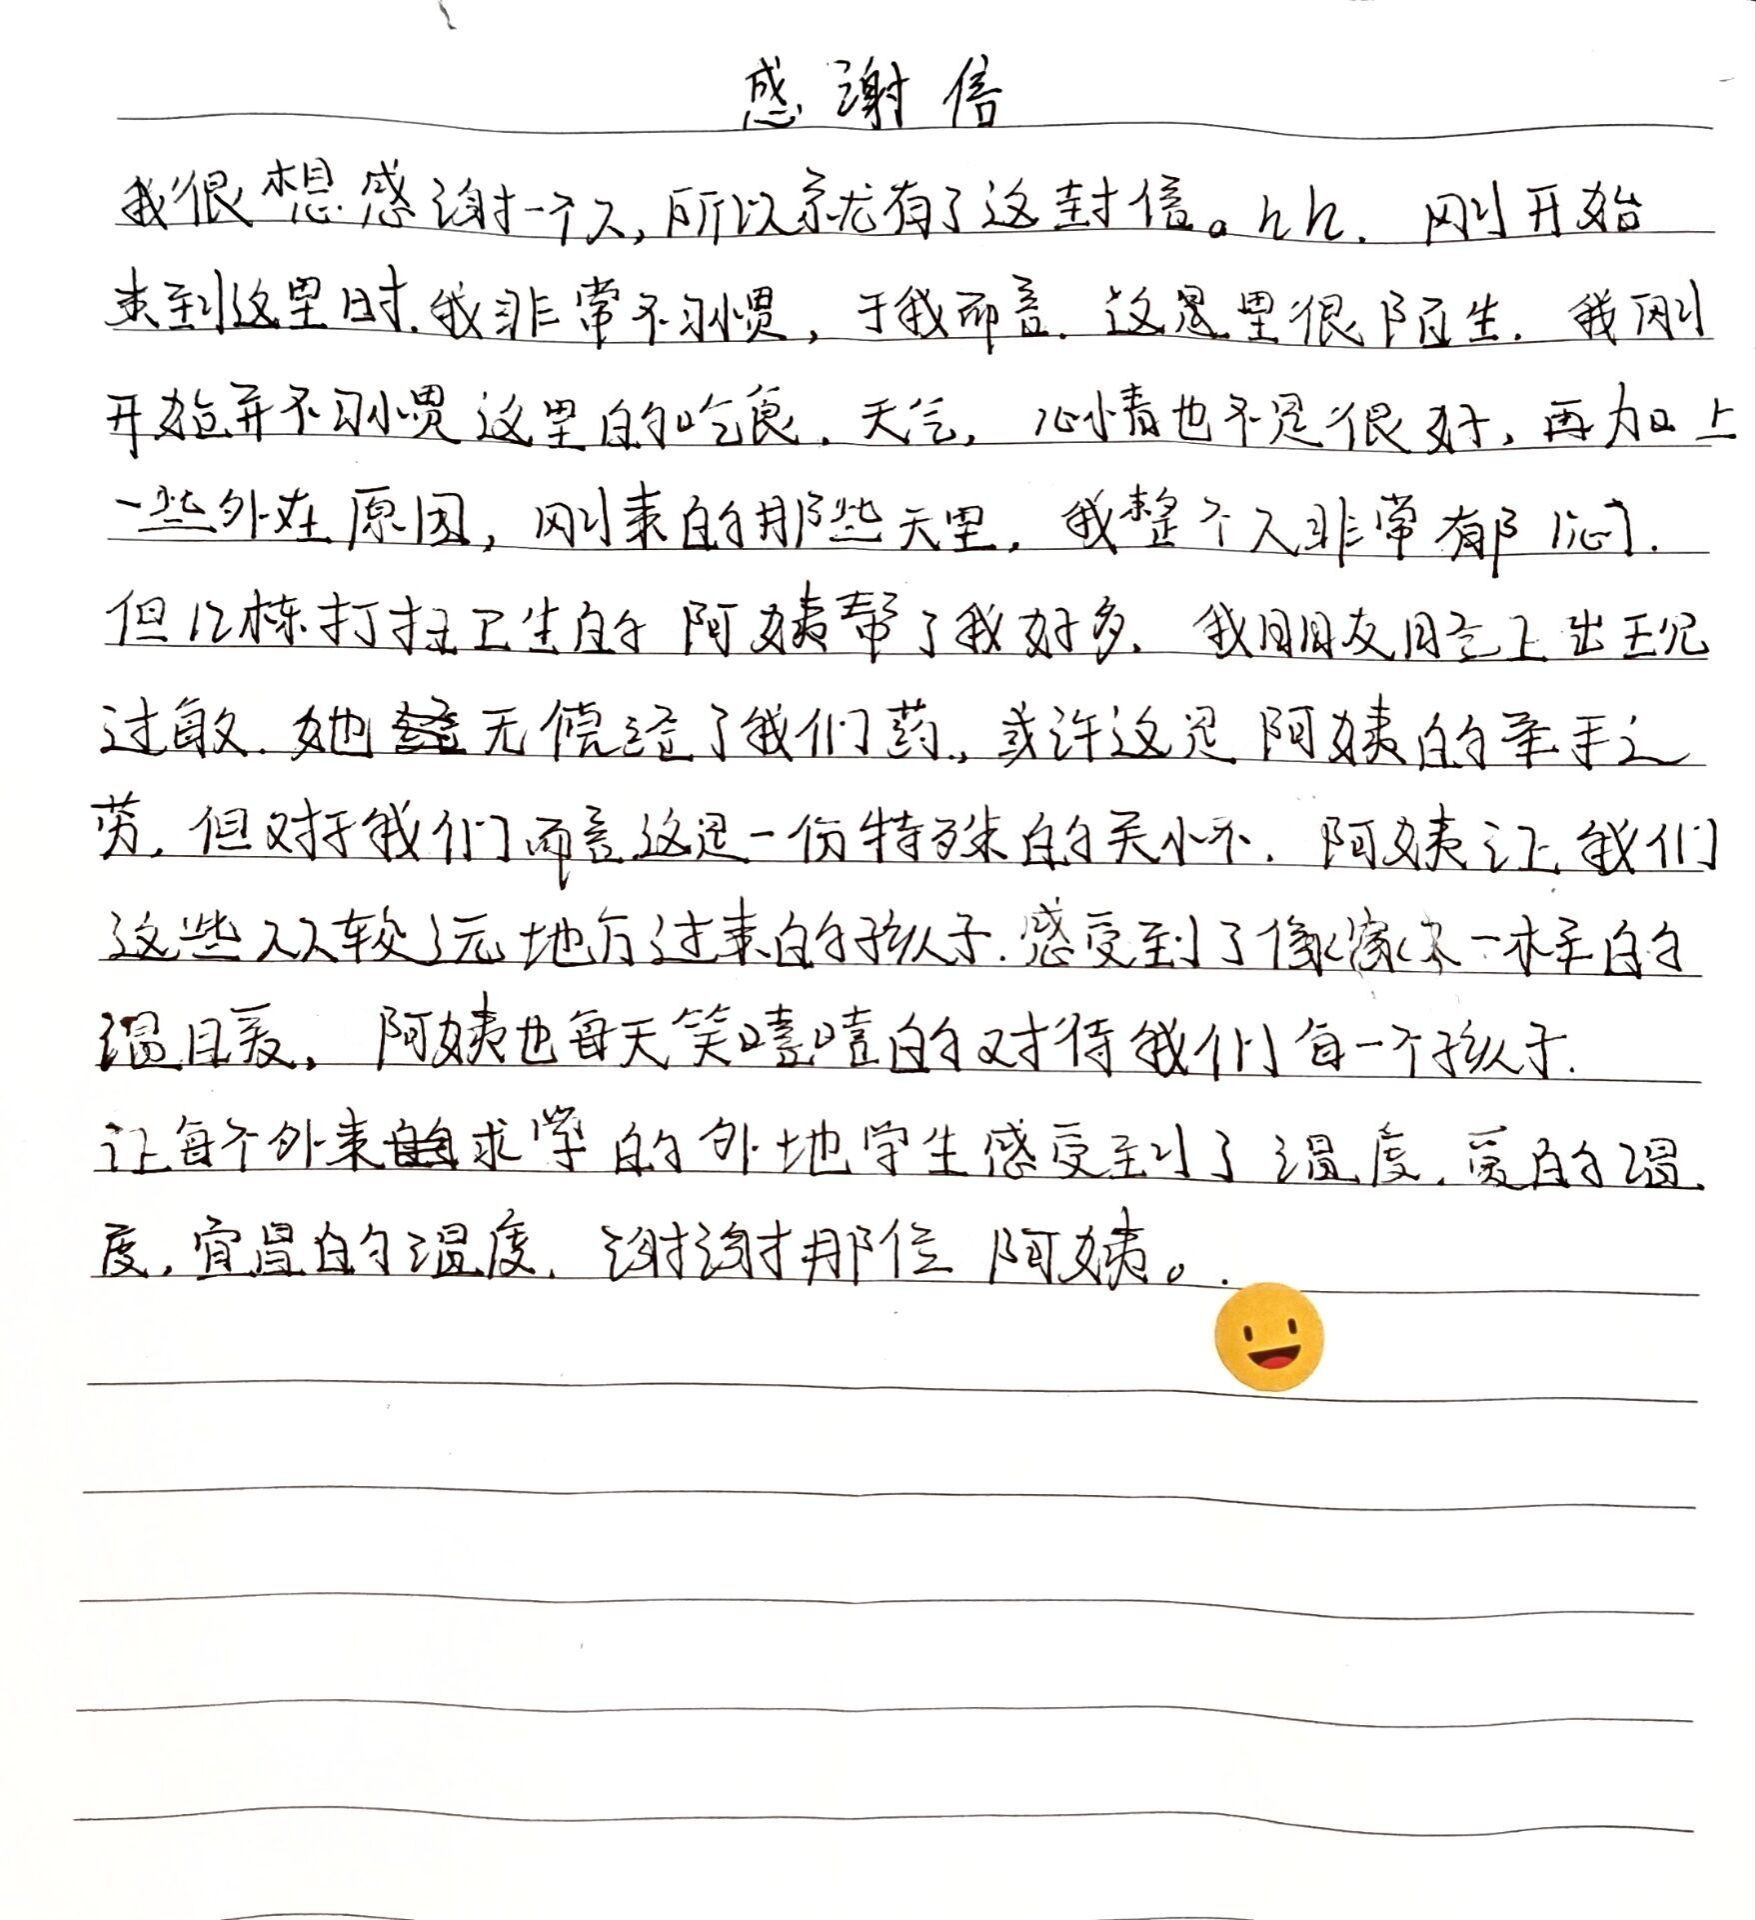 感谢信
我很想感谢一个人,所以就有了这封信。hh. 刚开始
来到这里时.我非常不习惯,于我而言.这里很陌生.我刚
开始并不习惯这里的吃食.天气,心情也不是很好,再加上
一些外在原因,刚来的那些天里,我整个人非常郁闷.
但12栋打扫卫生的阿姨帮了我好多.我朋友脸上出现
过敏.她无偿给了我们药.,或许这是阿姨的举手之
劳,但对于我们而言这是一份特殊的关怀.阿姨让我们
这些从较远地方过来的孩子.感受到了像家一样的
温暖,阿姨也每天笑嘻嘻的对待我们每一个孩子.
让每个外来求学的外地学生感受到了温度.爱的温
度,宜昌的温度.谢谢那位阿姨。.